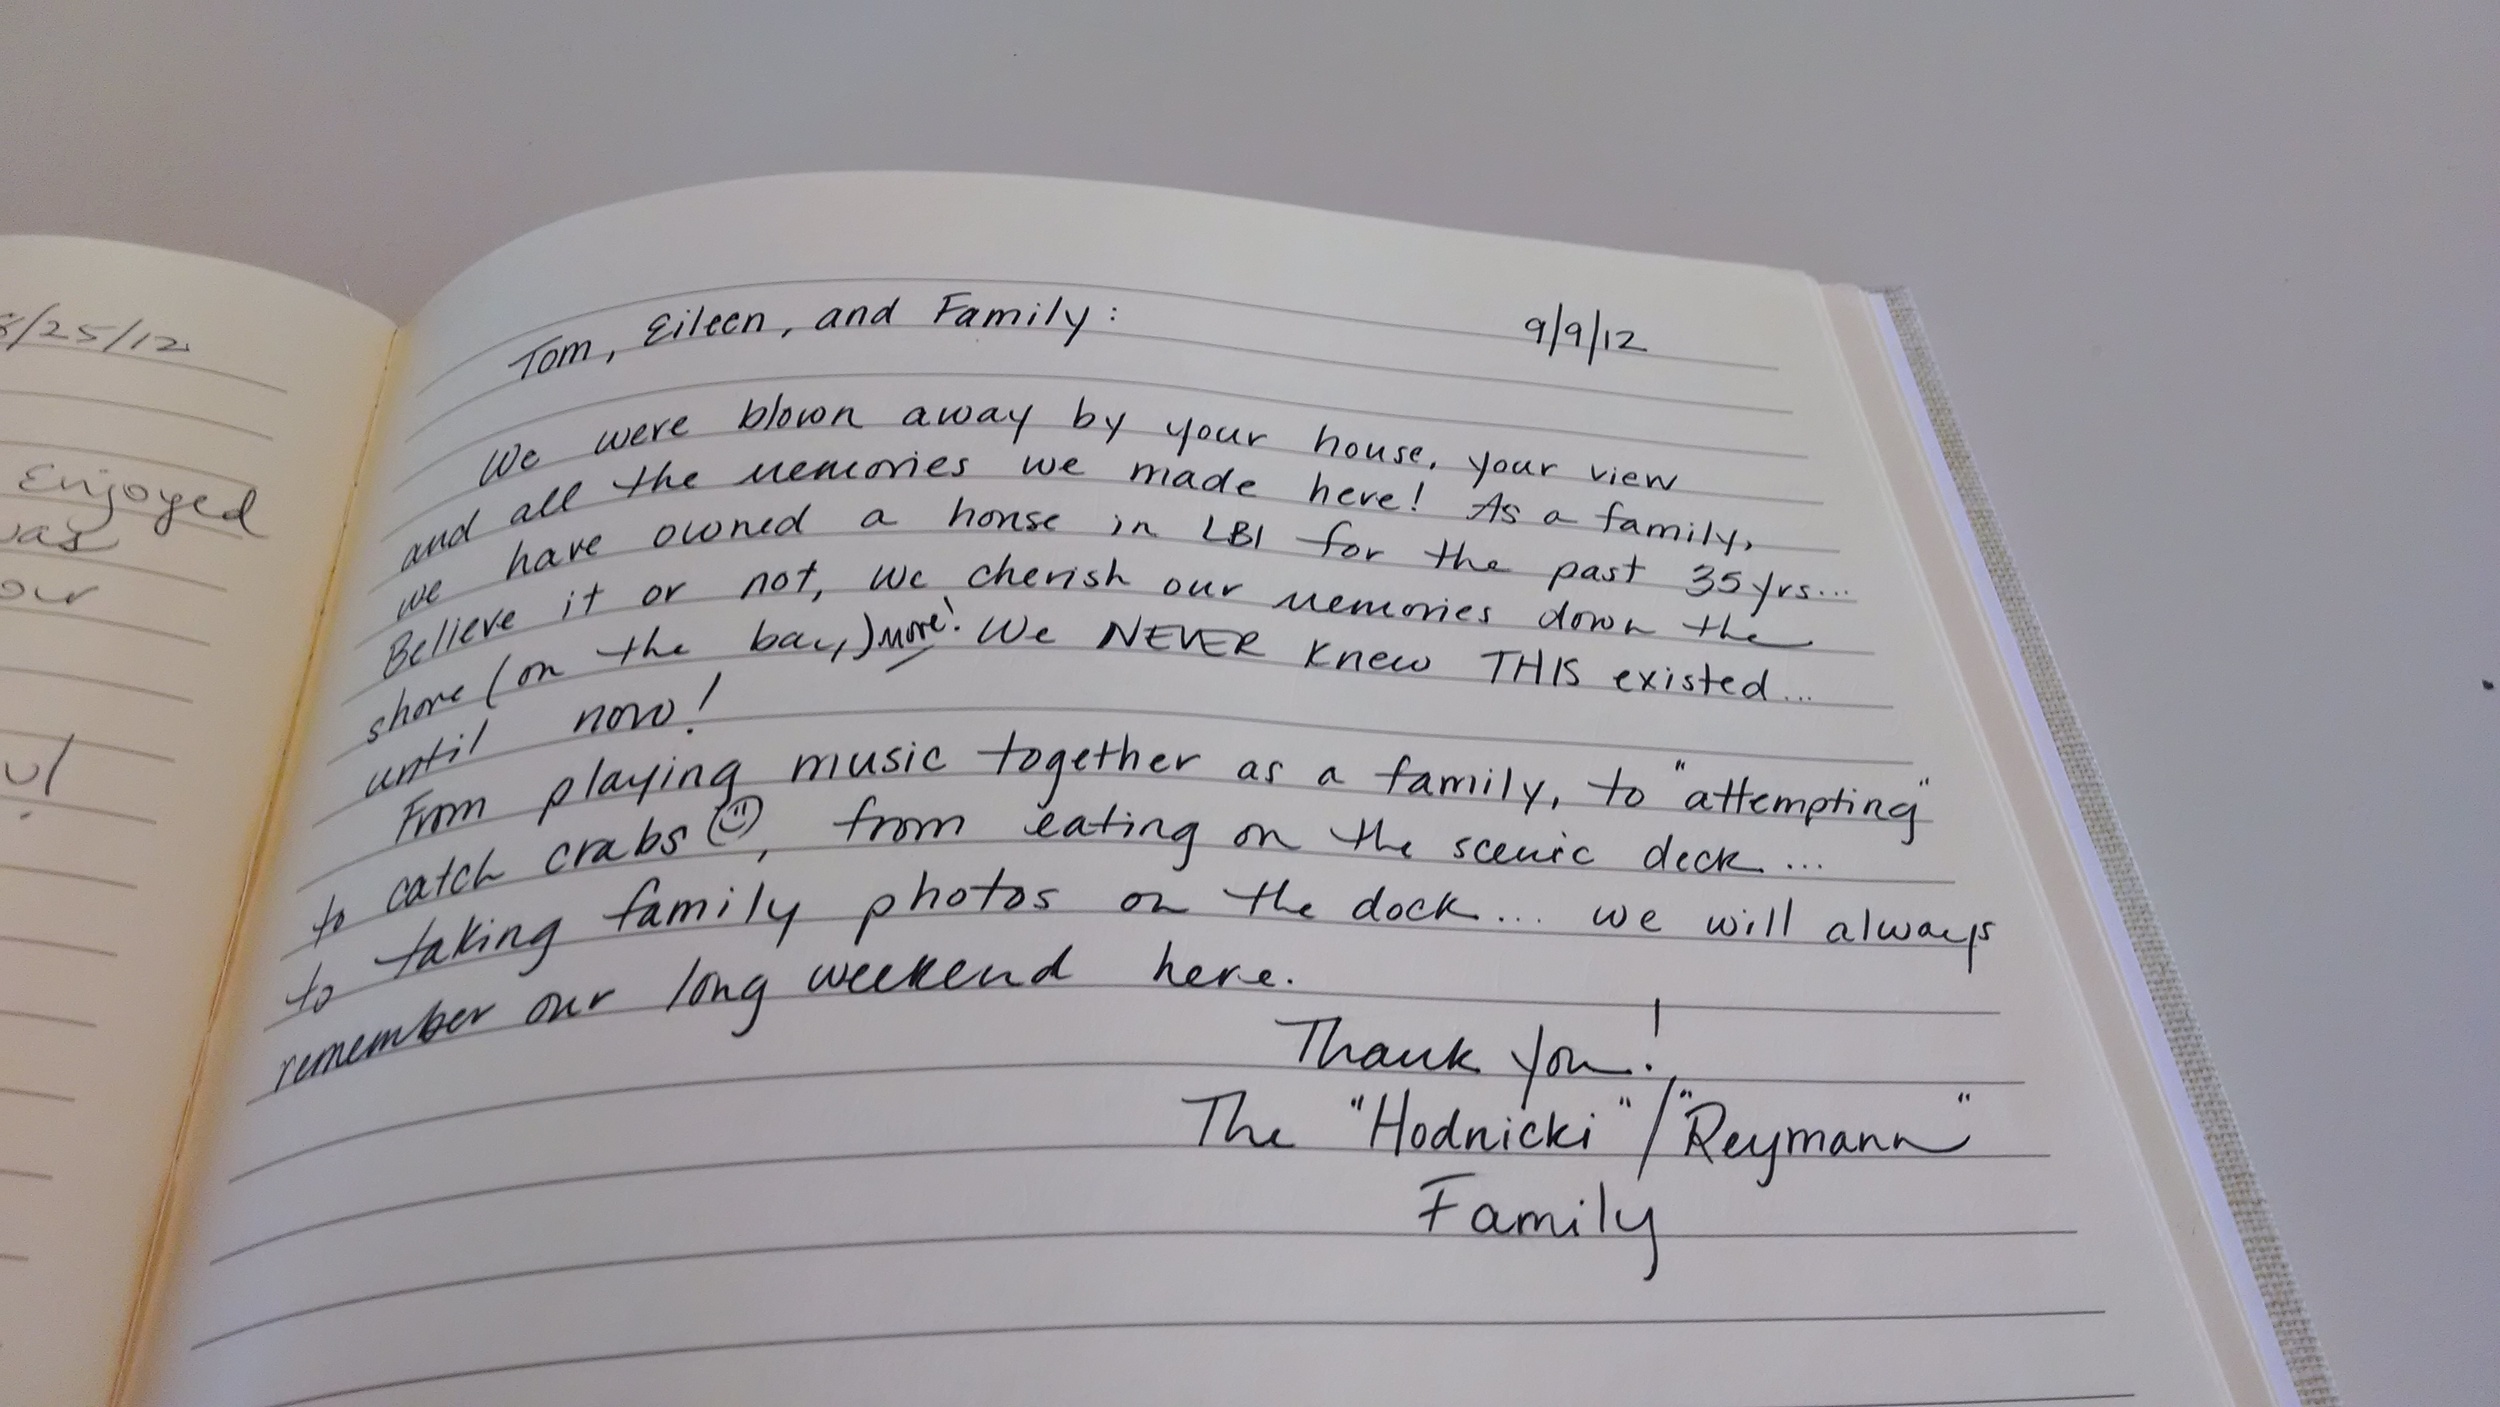 8/25/12
Enjoyed
our
Tom, Eileen, and Family:
9/9/12
We were blown away by your house, your view
and all the memories we made here! As a family,
we have owned a house in LBI for the past 35yrs...
Believe it or not, we cherish our memories down the
shore (on the bay) more! We NEVER knew THIS existed...
until now!
From playing music together as a family, to "attempting"
to catch crabs☺, from eating on the scenic deck...
to taking family photos on the dock... we will always
remember our long weekend here.
Thank you!
The "Hodnicki" / "Reymann"
Family